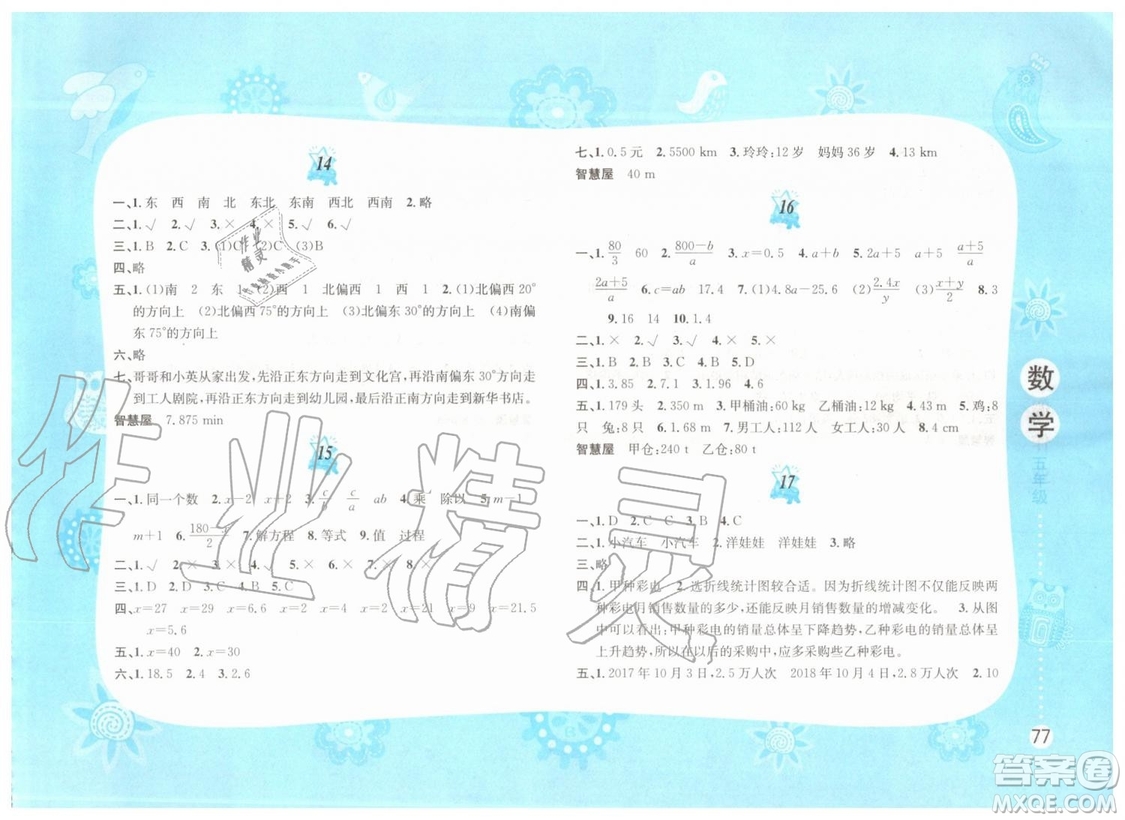 14
一、1.东 西 南 北 东北 东南 西北 西南 2.略
二、1.√ 2.√ 3.× 4.× 5.√ 6.√
三、1.B 2.C 3.(1)C (2)C (3)B
四、略
五、1.(1)南 2 东 1 (2)西 1 北偏西 1 西 1 2.(1)北偏西20°
的方向上 (2)北偏西75°的方向上 (3)北偏东30°的方向上 (4)南偏
东75°的方向上
六、略
七、哥哥和小英从家出发,先沿正东方向走到文化宫,再沿南偏东30°方向走
到工人剧院,再沿正东方向走到幼儿园,最后沿正南方向走到新华书店。
智慧屋 7.875 min
15
一、1.同一个数 2.x-2 x+2 3.c/b c/a ab 4.乘 除以 5.m-1
m+1 6.(180-b)/2 7.解方程 8.等式 9.值 过程
二、1.√ 2.× 3.× 4.√ 5.× 6.×
三、1.D 2.D 3.A 4.C 5.D
四、x=27 x=29 x=6 x=8 x=9 x=21.5
x=5.6
五、1.x=40 2.x=30
六、1.18.5 2.4 3.2.6
七、1.0.5元 2.5500 km 3.玲玲:12岁 妈妈36岁 4.13 km
智慧屋 40 m
16
一、1.80/3 60 2.(800-b)/a 3.x=0.5 4.a+b 5.2a+5 (a+5)/a
(2a+5)/a 6.c=ab 17.4 7.(1)8a-25.6 (2)2.4x/y (3)(x+y)/2 8.3
9.16 14 10.1.4
二、1.× 2.√ 3.√ 4.× 5.×
三、1.B 2.B 3.C 4.B 5.D
四、1.3.85 2.7.1 3.1.96 4.x=6
五、1.179头 2.350 m 3.甲桶油:60 kg 乙桶油:10 kg 4.43 m 5.鸡:8
只 兔:8只 6.1.68 m 7.男工人:112人 女工人:28人 8.4 cm
智慧屋 甲仓:240 t 乙仓:80 t
17
一、1.D 2.C C 3.B 4.C
二、1.小汽车 小汽车 2.洋娃娃 洋娃娃 3.略
三、略
四、1.甲种彩电 2.选折线统计图较合适。因为折线统计图不仅能反映两
种彩电月销售数量的多少,还能反映月销售数量的增减变化。 3.从图
中可以看出:甲种彩电的销量总体呈下降趋势,乙种彩电的销量总体呈
上升趋势,所以在以后的采购中,应多采购乙种彩电。
五、1.2017年10月3日,2.5万人次 2018年10月4日,2.8万人次 2.10
数学
五年级
77
作业精灵
答案圈
MXQE.COM